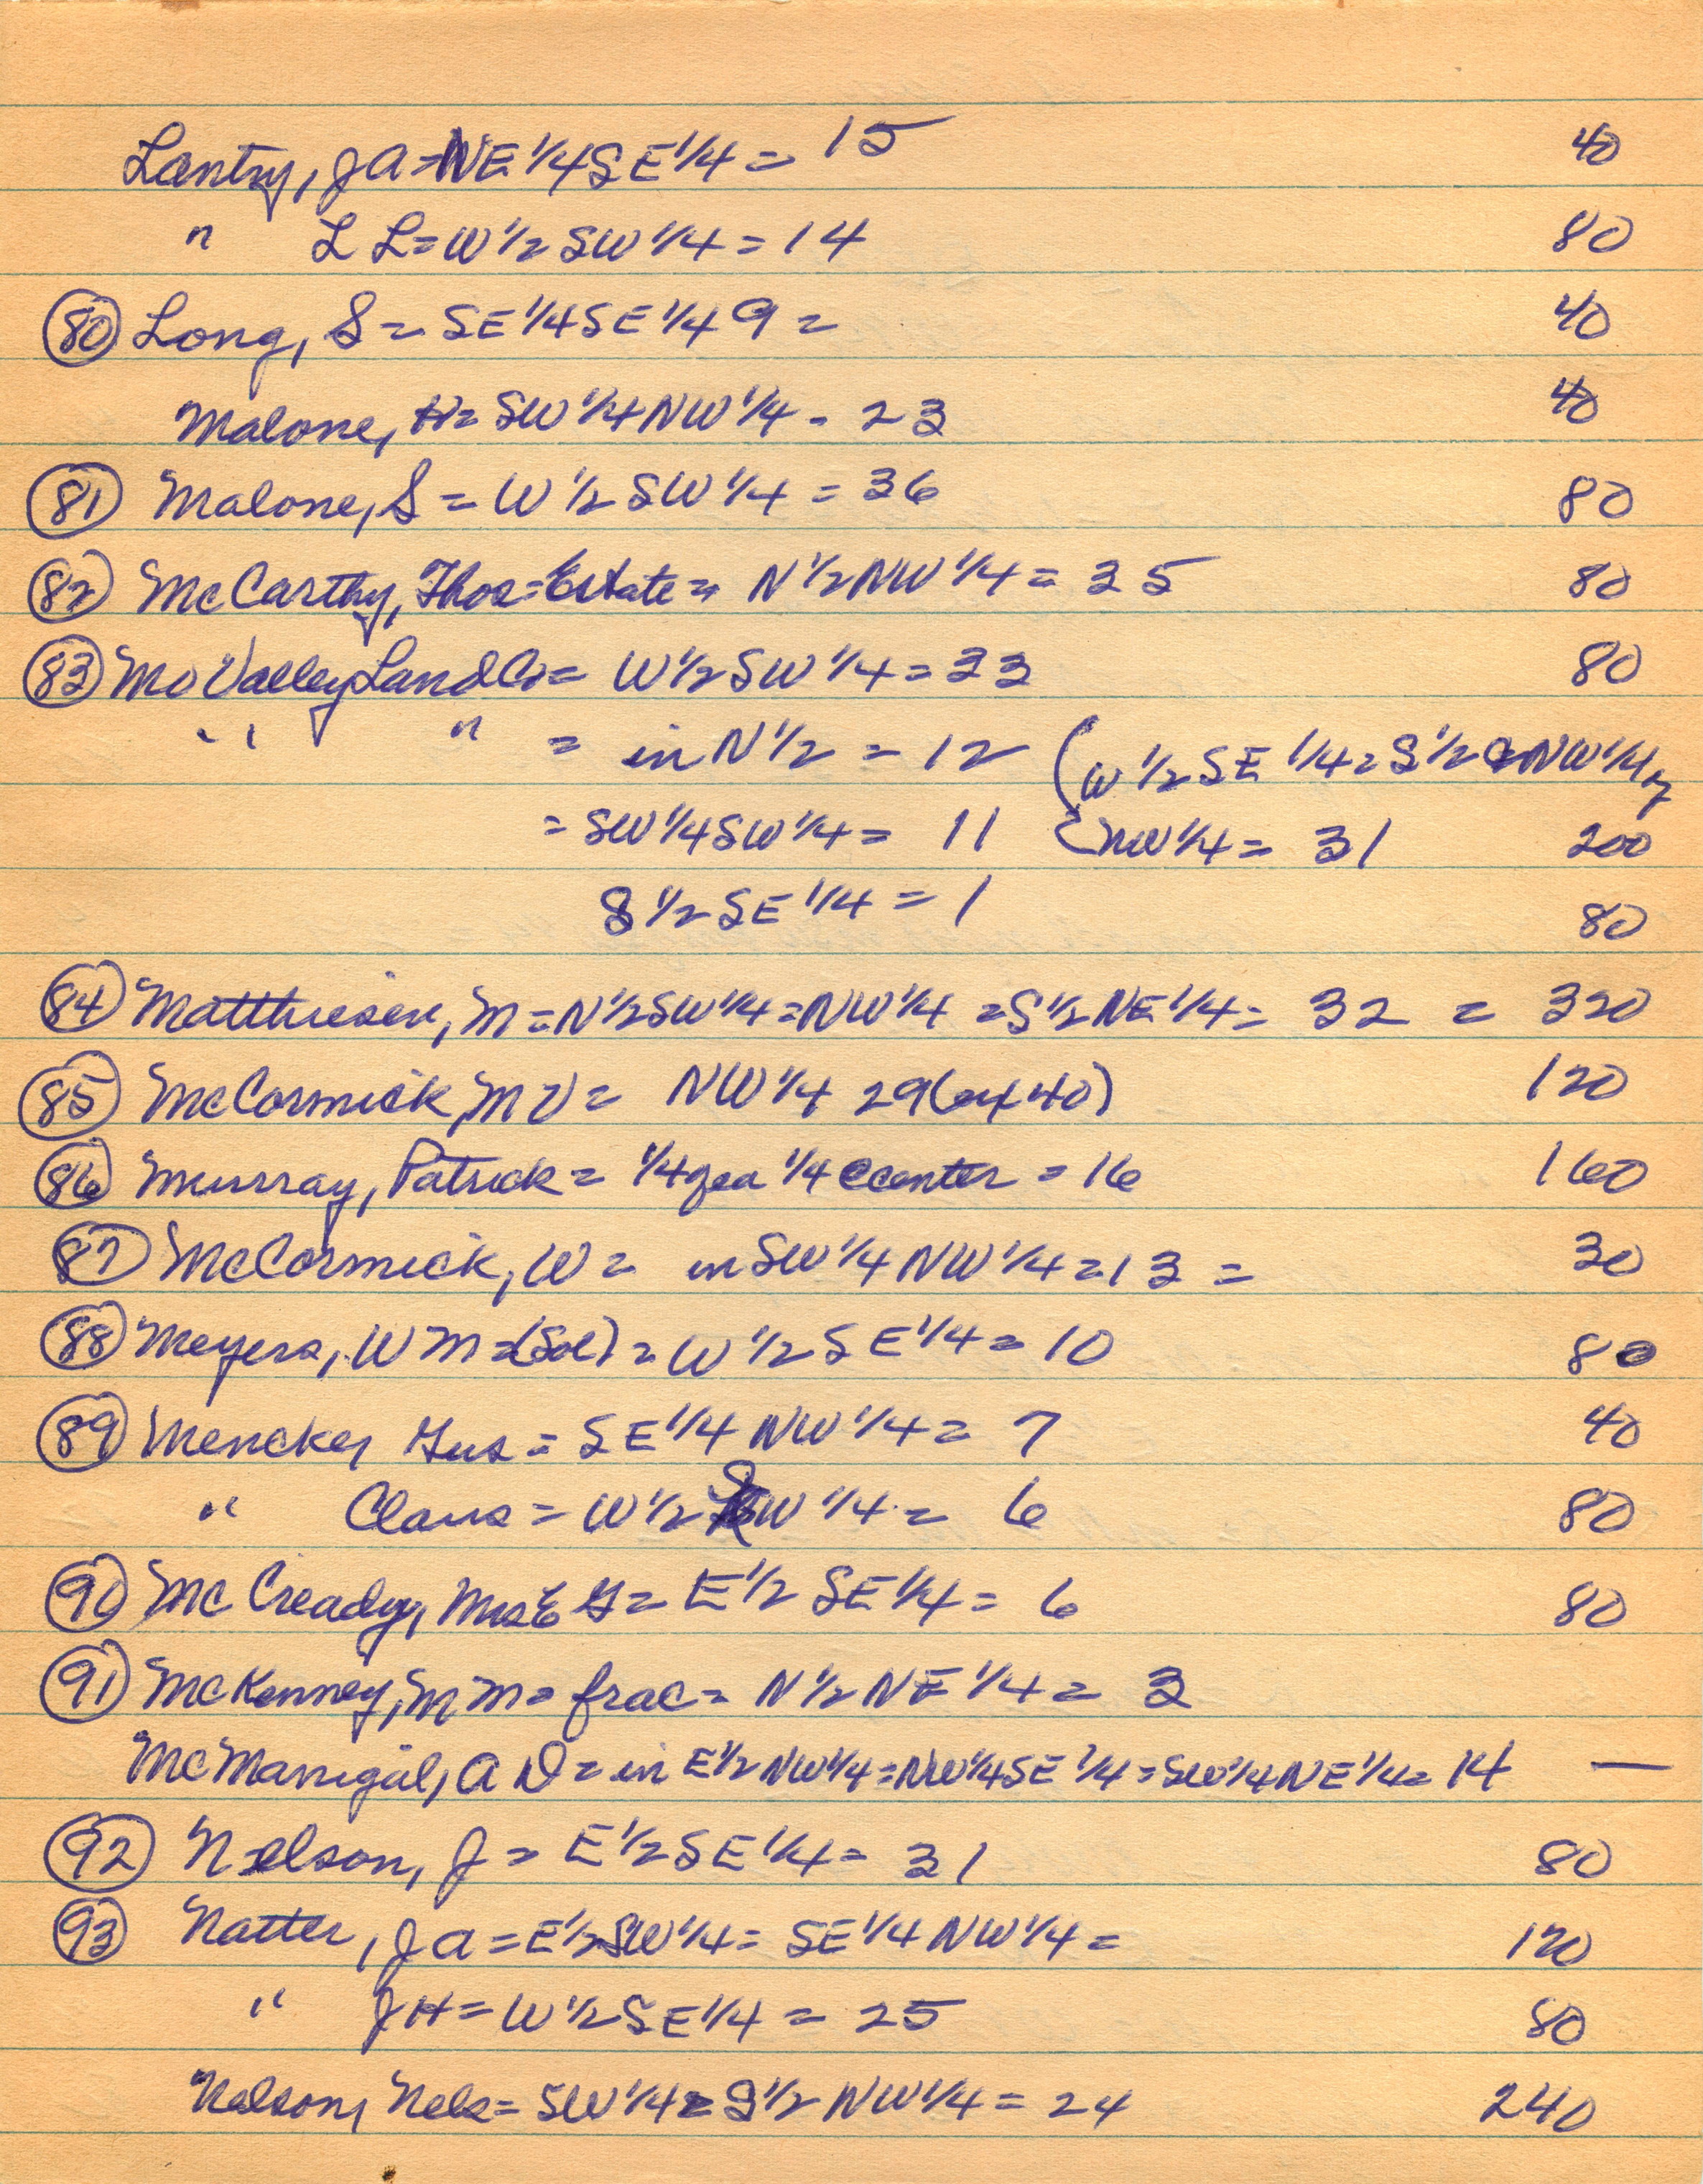 Lantry, J A = NE 1/4 SE 1/4 = 15 40
" L L = W 1/2 SW 1/4 = 14 80
80 Long, S = SE 1/4 SE 1/4 9 = 40
Malone, H = SW 1/4 NW 1/4 - 23 40
81 Malone, S = W 1/2 SW 1/4 = 36 80
82 McCarthy, Thos = Estate = N 1/2 NW 1/4 = 35 80
83 Mo Valley Land Co = W 1/2 SW 1/4 = 33 80
" " = in N 1/2 = 12 (W 1/2 SE 1/4 = S 1/2 NW 1/4,
= SW 1/4 SW 1/4 = 11 NW 1/4 = 31 200
S 1/2 SE 1/4 = 1 80
84 Matthiesen, M = N 1/2 SW 1/4 = NW 1/4 = S 1/2 NE 1/4 = 32 = 320
85 McCormick, M V = NW 1/4 29 (ex 40) 120
86 Murray, Patrick = 1/4 of ea 1/4 center = 16 160
87 McCormick, W = in SW 1/4 NW 1/4 = 13 = 30
88 Meyers, W M = (Sol) = W 1/2 SE 1/4 = 10 80
89 Mencke, Gus = SE 1/4 NW 1/4 = 7 40
" Claus = W 1/2 SW 1/4 = 6 80
90 McCready, Mrs E G = E 1/2 SE 1/4 = 6 80
91 McKenney, M M = frac = N 1/2 NE 1/4 = 3
McManigal, A D = in E 1/2 NW 1/4 = NW 1/4 SE 1/4 = SW 1/4 NE 1/4 = 14 —
92 Nelson, J = E 1/2 SE 1/4 = 31 80
93 Natter, J A = E 1/2 SW 1/4 = SE 1/4 NW 1/4 = 120
" J H = W 1/2 SE 1/4 = 25 80
Nelson, Nels = SW 1/4 = S 1/2 NW 1/4 = 24 240